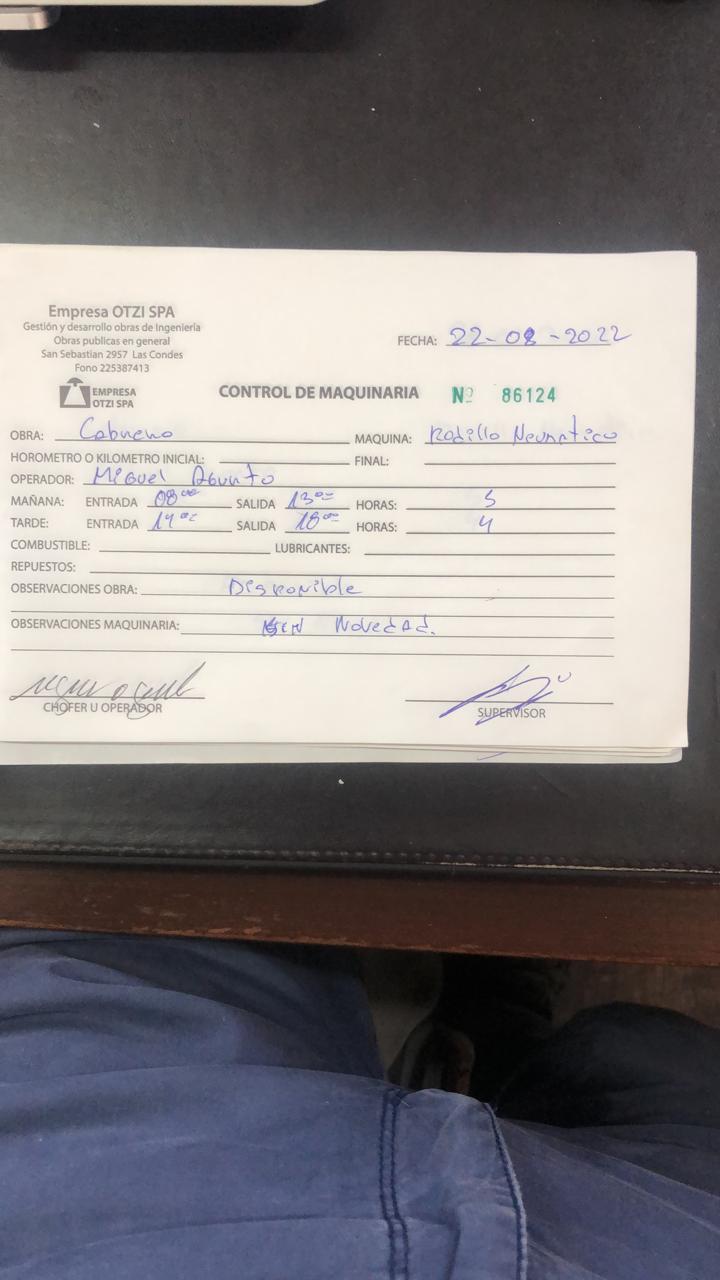 Empresa OTZI SPA
Gestión y desarrollo obras de Ingenieria
Obras publicas en general
San Sebastian 2957 Las Condes
Fono 225387413
EMPRESA
OTZI SPA
FECHA: 22-08-2022
CONTROL DE MAQUINARIA Nº 86124
OBRA: Cabrero MAQUINA: Rodillo Neumatico
HOROMETRO O KILOMETRO INICIAL: FINAL:
OPERADOR: Miguel
MAÑANA: ENTRADA 08 00 SALIDA 13 00 HORAS: 5
TARDE: ENTRADA 14 00 SALIDA 18 00 HORAS: 4
COMBUSTIBLE: LUBRICANTES:
REPUESTOS:
OBSERVACIONES OBRA: Disponible
OBSERVACIONES MAQUINARIA: SIN Novedad.
CHOFER U OPERADOR SUPERVISOR